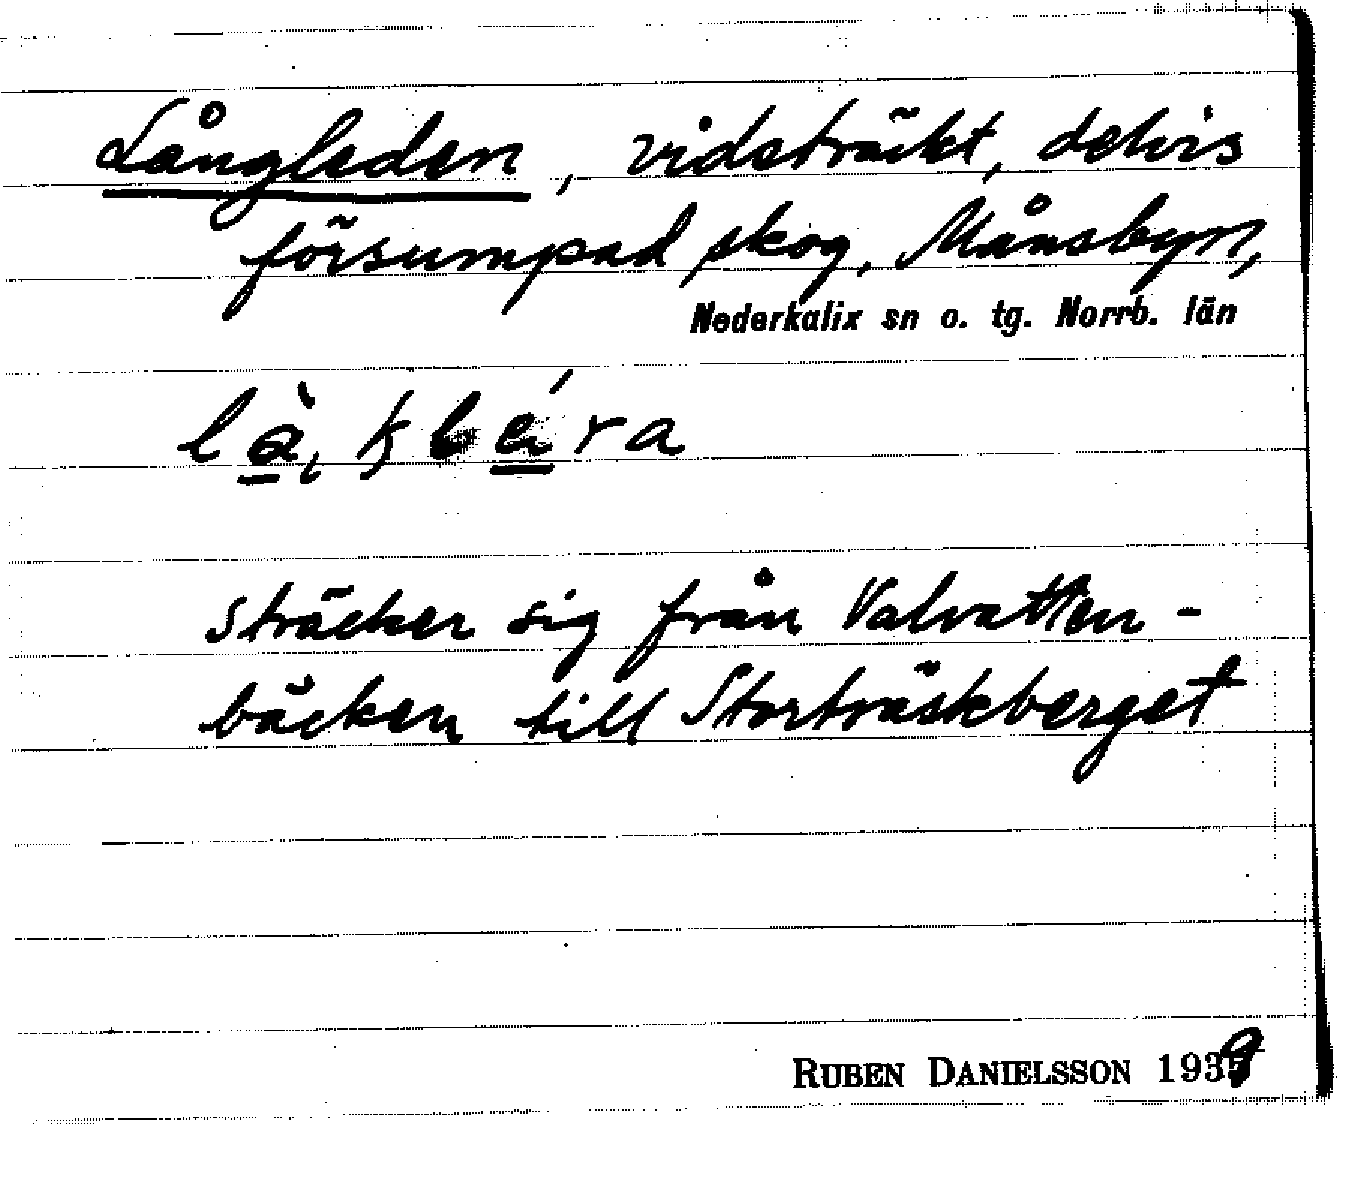 Långleden, vidsträkt, delvis
försumpad skog, Månsbyn,
Nederkalix sn o. tg. Norrb. län
sträcker sig från Valvatten-
bäcken till Storträskberget
RUBEN DANIELSSON 1939